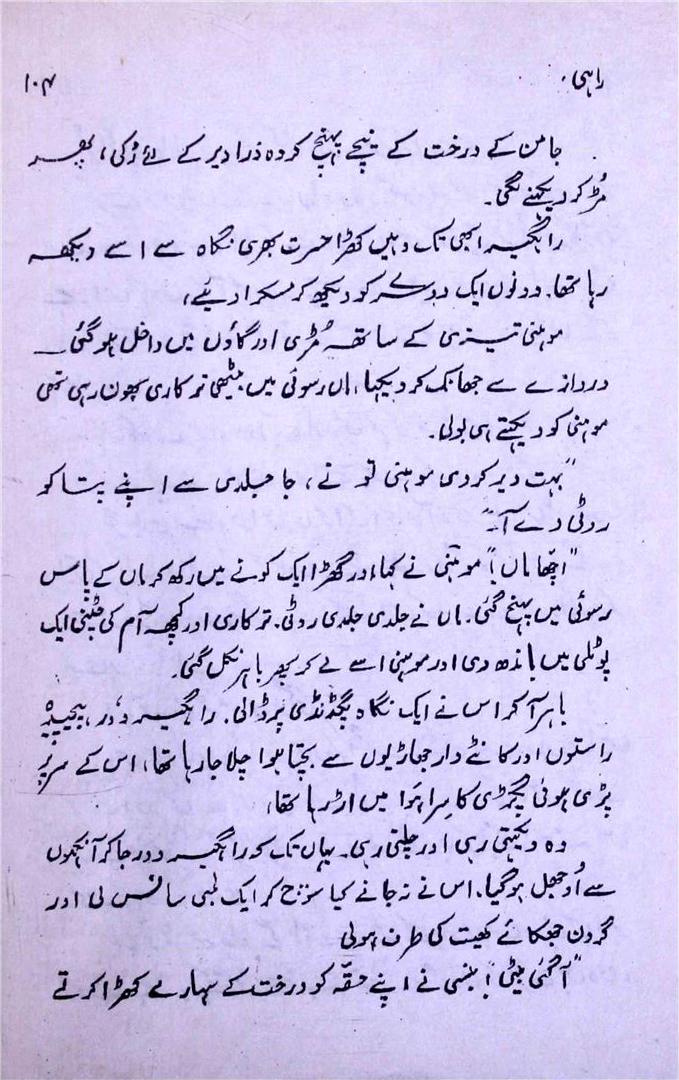 راہی.
۱۰۴
جامن کے درخت کے نیچے پہنچ کر وہ ذرا دیر کے لئے رُکی، پھر
مُڑ کر دیکھنے لگی۔
راہگیر ابھی تک وہیں کھڑا حسرت بھری نگاہ سے اسے دیکھ
رہا تھا. دونوں ایک دوسرے کو دیکھ کر مسکرا دیئے،
موہنی تیزی کے ساتھ مُڑی اور گاؤں میں داخل ہو گئی۔
دروازے سے جھانک کر دیکھا، ماں رسوئی میں بیٹھی ترکاری بھون رہی تھی
موہنی کو دیکھتے ہی بولی۔
"بہت دیر کر دی موہنی تو نے، جا جلدی سے اپنے پتا کو
روٹی دے آ۔"
"اچھا ماں!" موہنی نے کہا، اور گھڑا ایک کونے میں رکھ کر ماں کے پاس
رسوئی میں پہنچ گئی. ماں نے جلدی جلدی روٹی. ترکاری اور کچھ آم کی چٹنی ایک
پوٹلی میں باندھ دی اور موہنی اسے لے کر پھر باہر نکل گئی۔
باہر آ کر اس نے ایک نگاہ پگڈنڈی پر ڈالی. راہگیر دُور، پیچیدہ
راستوں اور کانٹے دار جھاڑیوں سے بچتا ہوا چلا جا رہا تھا، اس کے سر پر
پڑی ہوئی پگڑی کا سِرا ہَوا میں اڑ رہا تھا،
وہ دیکھتی رہی اور چلتی رہی۔ یہاں تک کہ راہگیر دور جا کر آنکھوں
سے اُوجھل ہو گیا. اس نے نہ جانے کیا سوچ کر ایک لمبی سانس لی اور
گردن جھکائے کھیت کی طرف ہولی
"آگئی بیٹی!" بنسی نے اپنے حقّہ کو درخت کے سہارے کھڑا کرتے